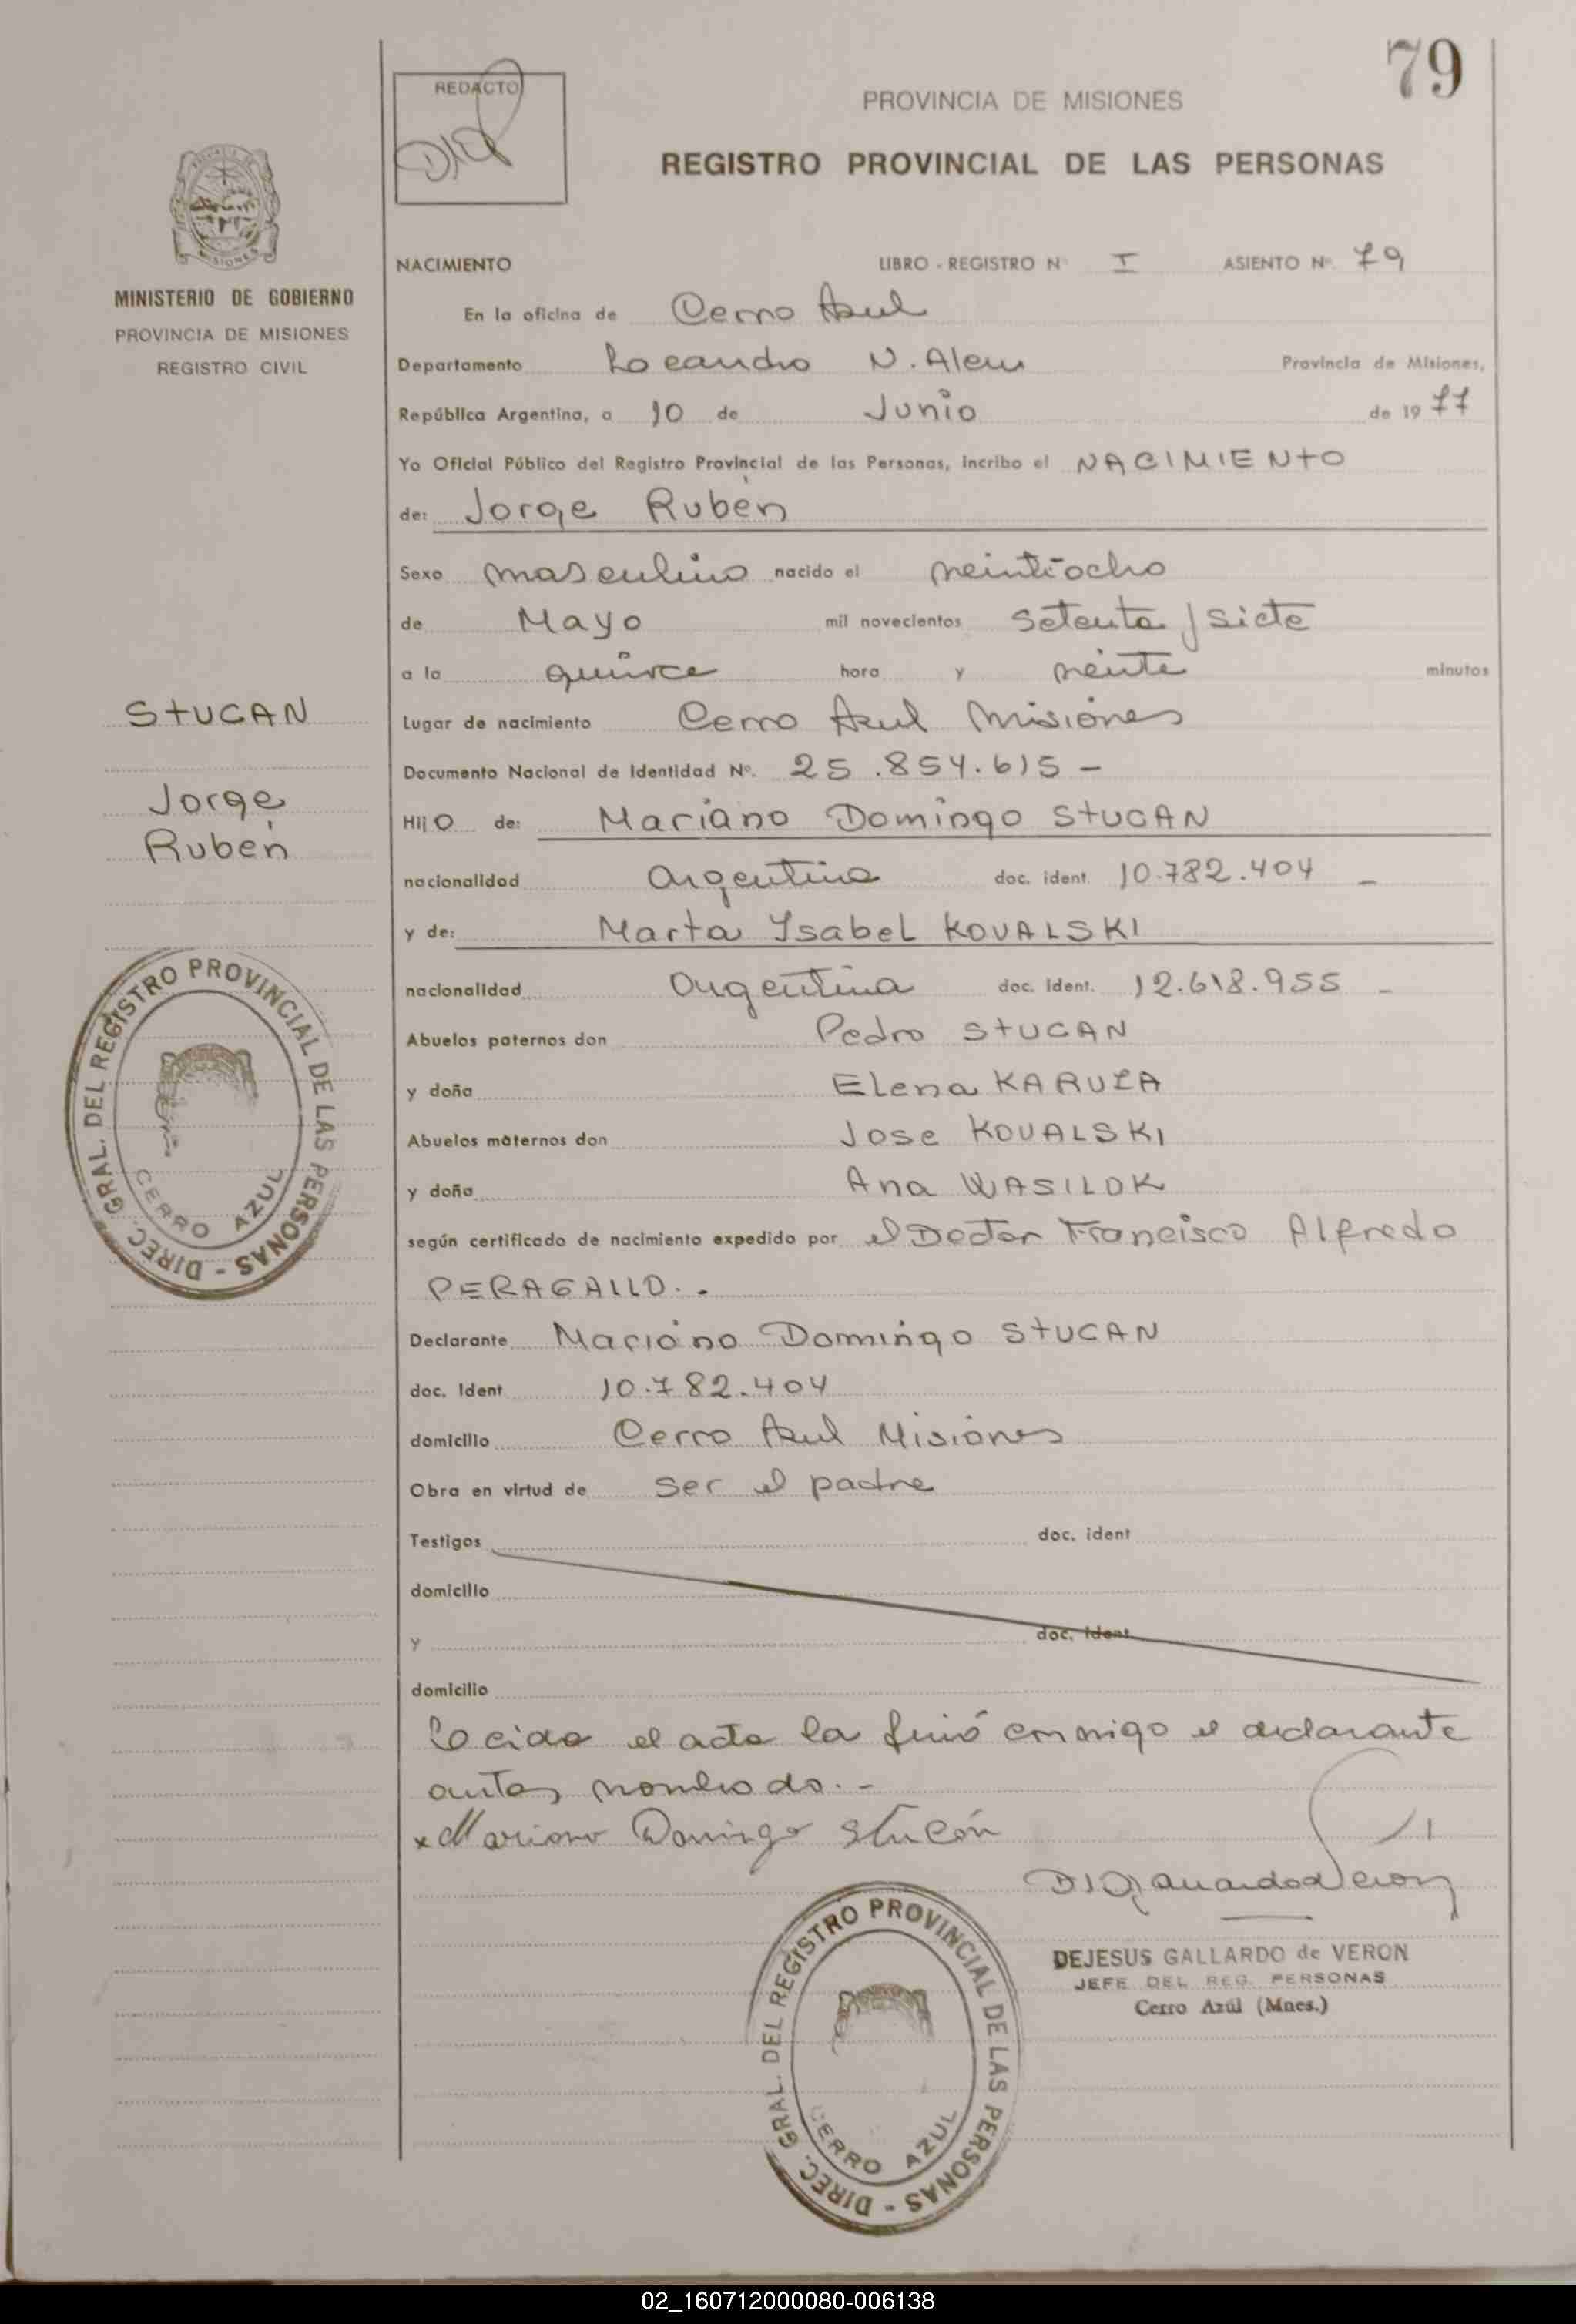 79
REDACTO
PROVINCIA DE MISIONES
REGISTRO PROVINCIAL DE LAS PERSONAS
MINISTERIO DE GOBIERNO
PROVINCIA DE MISIONES
REGISTRO CIVIL
NACIMIENTO LIBRO - REGISTRO Nº I ASIENTO Nº. 79
En la oficina de Cerro Azul
Departamento Leandro N. Alem Provincia de Misiones,
República Argentina, a 10 de Junio de 1977
Yo Oficial Público del Registro Provincial de las Personas, incribo el NACIMIENTO
de: Jorge Rubén
Sexo masculino nacido el veintiocho
de Mayo mil novecientos setenta y siete
a la quince hora y veinte minutos
Lugar de nacimiento Cerro Azul Misiones
Documento Nacional de Identidad Nº. 25.854.615 -
Hijo de: Mariano Domingo STUCAN
nacionalidad argentina doc. ident. 10.782.404 -
y de: Marta Ysabel KOVALSKI
nacionalidad argentina doc. ident. 12.618.955 -
Abuelos paternos don Pedro STUCAN
y doña Elena KARUZA
Abuelos maternos don Jose KOVALSKI
y doña Ana WASILOK
según certificado de nacimiento expedido por el Doctor Francisco Alfredo
PERAGALLO. -
Declarante Mariano Domingo STUCAN
doc. Ident 10.782.404
domicilio Cerro Azul Misiones
Obra en virtud de ser el padre
Testigos doc. ident
domicilio
y doc. ident
domicilio
Leida el acta la firmó conmigo el declarante
antes nombrado. -
x Mariano Domingo Stucán
DEJESUS GALLARDO de VERON
JEFE DEL REG. PERSONAS
Cerro Azul (Mnes.)
STUCAN
Jorge
Rubén
DIREC. GRAL. DEL REGISTRO PROVINCIAL DE LAS PERSONAS -
CERRO AZUL
DIREC. GRAL. DEL REGISTRO PROVINCIAL DE LAS PERSONAS -
CERRO AZUL
02_160712000080-006138